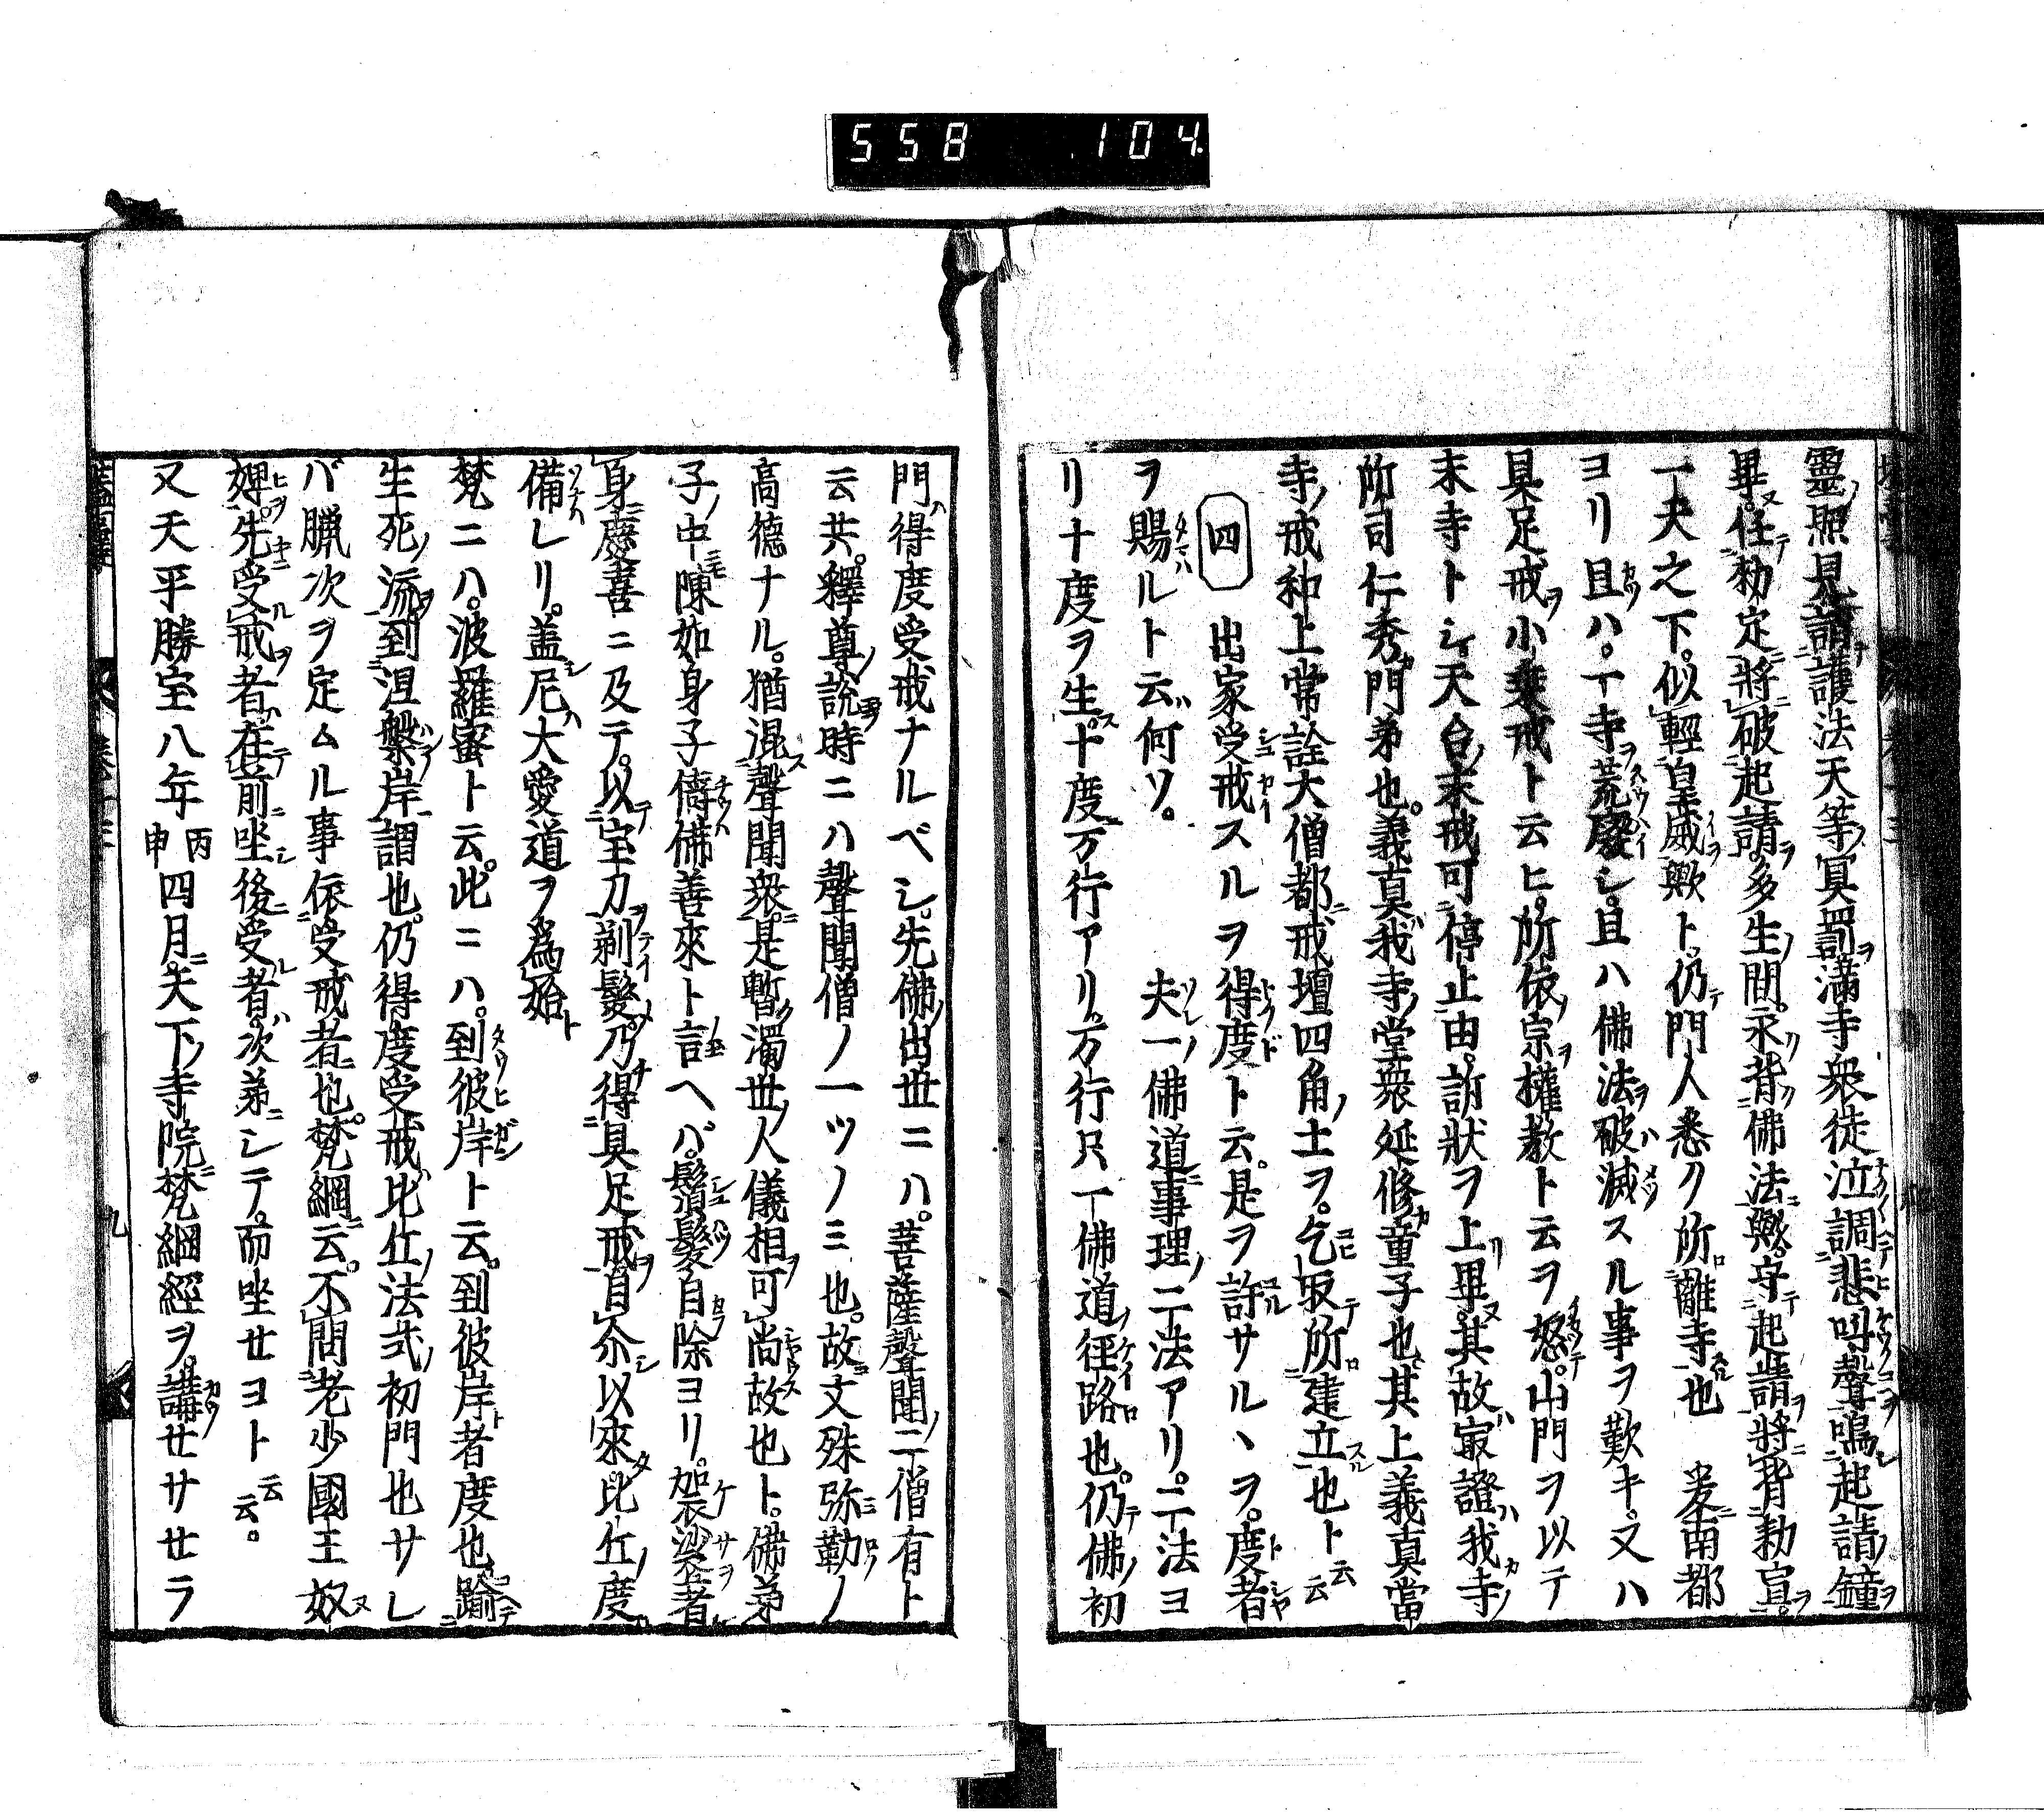 558 104
靈照見請護法天等冥罰滿寺衆徒泣調悲叫聲鳴起請鐘
畢任勅定將破起請多生間永背佛法歟守起請將背勅宣
一天之下似輕皇威歟ト仍門人悉ク所離寺也 爰南都
ヨリ且ハ一寺荒廢シ且ハ佛法破滅スル事ヲ歎キ又ハ
具足戒小乗戒ト云ヒ所依宗權教ト云ヲ怒山門ヲ以テ
末寺トシ天台末戒可停止由訴狀ヲ上畢其故寂證我寺
所司仁秀門弟也義真我寺堂衆延修童子也其上義真當
寺戒和上常詮大僧都戒壇四角土ヲ乞取所建立也ト云云
四 出家受戒スルヲ得度ト云是ヲ許サルヽヲ度者
ヲ賜ルト云何ソ 夫一佛道事理二法アリ二法ヨ
リ十度ヲ生十度万行アリ万行只一佛道徑路也仍佛初
門得度受戒ナルベシ先佛出世ニハ菩薩聲聞二僧有ト
云共釋尊説時ニハ聲聞僧ノ一ツノミ也故文殊弥勒ノ
高徳ナル猶混聲聞衆是暫濁世人儀相可尚故也ト佛弟
子中陳如身子儔佛善來ト言ヘバ鬚髮自除ヨリ袈裟著
身慶喜ニ及テ以宝刀剃髮乃得具足戒自尒以來比丘度
備レリ盖尼大愛道ヲ爲始
梵ニハ波羅蜜ト云此ニハ到彼岸ト云到彼岸者度也踰
生死流到涅槃岸謂也仍得度受戒比丘法弐初門也サレ
バ臘次ヲ定ムル事依受戒者也梵網云不問老少國王奴
婢先受戒者在前坐後受者次弟シテ而坐セヨト云云
又天平勝宝八年丙申四月天下寺院梵網經ヲ講セサセラ
九